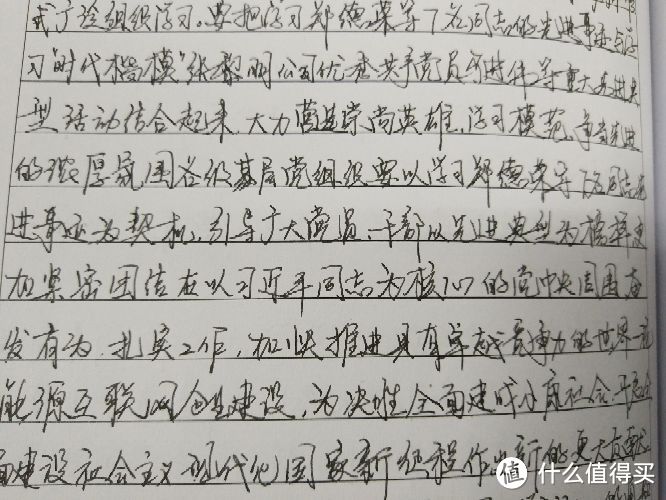 式广泛组织学习。要把学习郑德荣等7名同志的先进事迹与学
习“时代楷模”张黎明公司优秀共产党员等进行等重大先进典
型活动结合起来，大力营造崇尚英雄、学习模范、争当先进
的浓厚氛围各级基层党组织要以学习郑德荣等7名同志先
进事迹为契机，引导广大党员、干部以先进典型为榜样更
加紧密团结在以习近平同志为核心的党中央周围奋
发有为，扎实工作，加快推进具有卓越竞争力的世界一流
能源互联网企业建设，为决胜全面建成小康社会、开启全
面建设社会主义现代化国家新征程作出新的更大贡献
值 什么值得买